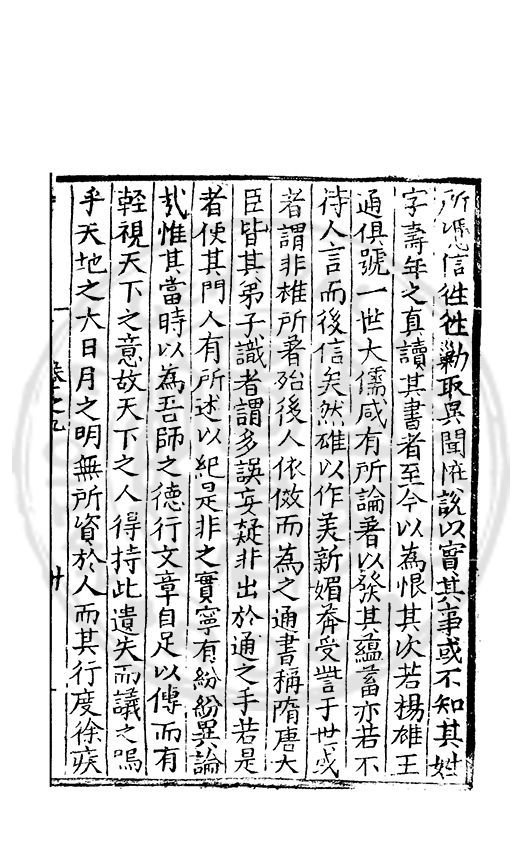 所憑信徃徃勦取異聞恠說以實其事或不知其姓
字壽年之真讀其書者至今以為恨其次若楊雄王
通俱號一世大儒咸有所論著以發其蘊蓄亦若不
待人言而後信矣然雄以作美新媚莾受訾于世或
者謂非雄所著殆後人依倣而為之通書稱隋唐大
臣皆其弟子識者謂多誤妄疑非出於通之手若是
者使其門人有所述以紀是非之實寧有紛紛異論
㢤惟其當時以為吾師之德行文章自足以傳而有
輕視天下之意故天下之人得持此遺失而議之嗚
乎天地之大日月之明無所資於人而其行度徐疾
卷之九